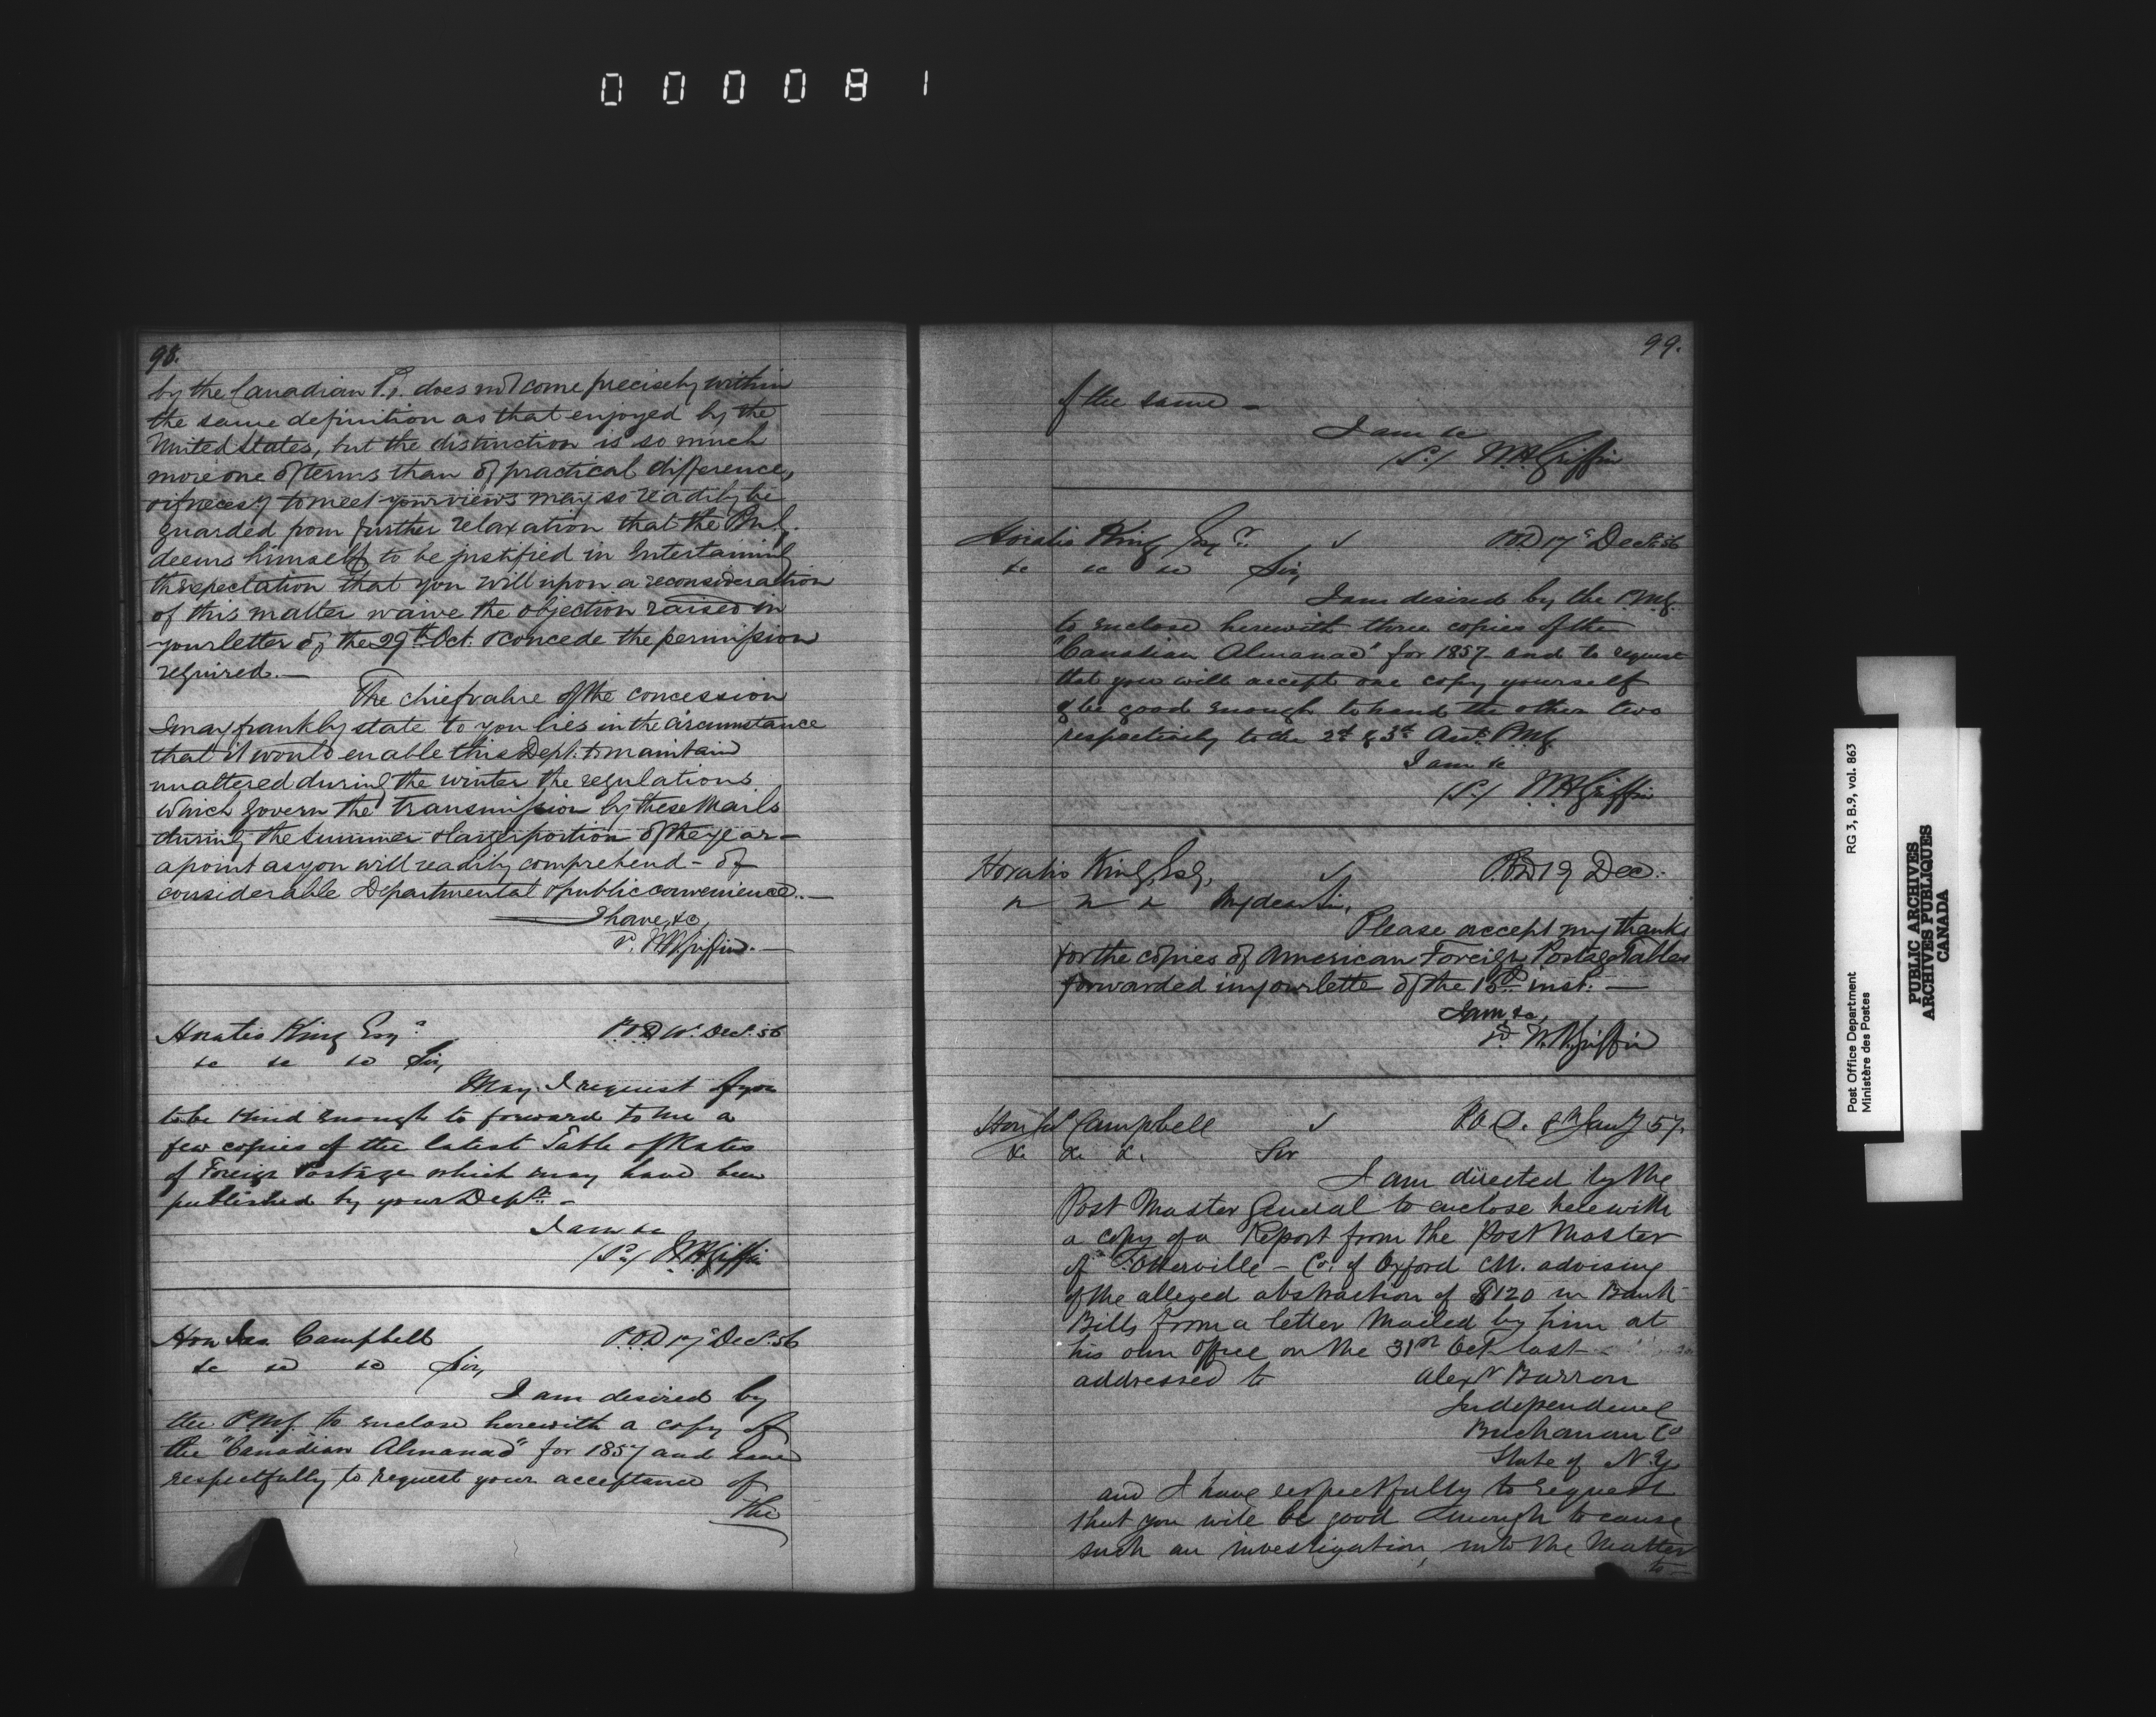 000081
98.
by the Canadian P.O. does not come precisely within
the same definition as that enjoyed by the
United States, but the distinction is so much
more one of terms than of practical difference,
or if necessy to meet your views may so readily be
guarded from further relaxation that the P.M.G.
deems himself to be justified in Entertaining
the expectation that you will upon a reconsideration
of this matter waive the objection raised in
your letter of the 29th Oct. & concede the permission
required.—
The chief value of the concession
I may frankly state to you lies in the circumstance
that it would enable this Dept. to maintain
unaltered during the winter the regulations
which govern the transmission by these Mails
during the Summer & larger portion of the year—
a point as you will readily comprehend - of
considerable Departmental & public convenience.—
I have, &c,
W.H. Griffin.—
Horatio King Esqr.
P.O.D Dect. 56
&c &c &c Sir,
May I request of you
to be kind enough to forward to me a
few copies of the latest Table of Rates
of Foreign Postage which may have been
published by your Dept.—
I am &c
(Sd/ W.H. Griffin
Hon Jas. Campbell
P.O.D 17 Dect. 56
&c &c &c Sir,
I am desired by
the P.M.G. to enclose herewith a copy of
the "Canadian Almanac" for 1857 and
respectfully to request your acceptance of
the
99.
of the same —
I am &c
(Sd/ W.H. Griffin
Horatio King Esqr. ✓ P.O.D 17 Dect. 56
&c &c &c Sir,
I am desired by the P.M.G.
to enclose herewith three copies of the
"Canadian Almanac" for 1857 and to request
that you will accept one copy yourself
& be good enough to hand the other two
respectively to the 2d & 3d Asst. P.M.G.
I am &c
(Sd/ W.H. Griffin
Horatio King, Esq, ✓ P.O.D 19 Dec.
" " " My dear Sir,
Please accept my thanks
for the copies of American Foreign Postage Tables
forwarded in your letter of the 15th inst. —
I am &c,
sd W.H. Griffin
Honbl Campbell ✓ P.O.D. 8th Jany 57.
&c &c &c. Sir
I am directed by the
Post Master General to enclose herewith
a copy of a Report from the Post Master
of Otterville — Co. of Oxford C.W. advising
of the alleged abstraction of $120 in Bank
Bills from a letter Mailed by him at
his own office on the 31st Oct last
addressed to Alexr Barron
Independence
Buchanan Co
State of N.Y.
and I have respectfully to request
that you will be good enough to cause
such an investigation into the Matter
to—
Post Office Department RG 3, B.9, vol. 863
Ministère des Postes
PUBLIC ARCHIVES
ARCHIVES PUBLIQUES
CANADA